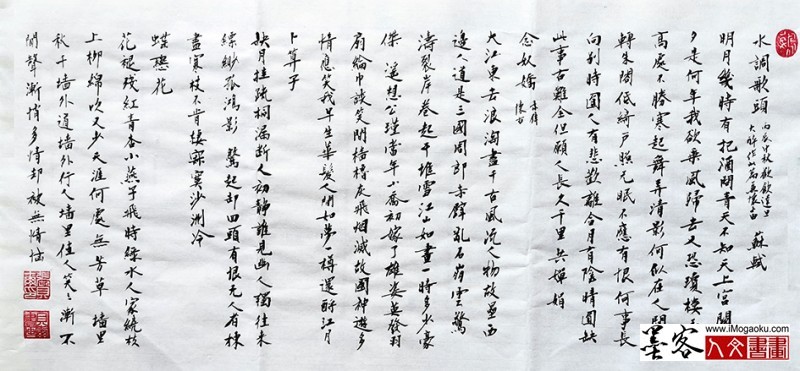 水調歌頭 丙辰中秋歡飲達旦
大醉作此篇兼懷子由 蘇軾
明月幾時有把酒問青天不知天上宮闕
夕是何年我欲乘風歸去又恐瓊樓
高處不勝寒起舞弄清影何似在人間
轉朱閣低綺戶照无眠不應有恨何事長
向別時圓人有悲歡離合月有陰晴圓缺
此事古難全但願人長久千里共嬋娟
念奴嬌 赤壁
懷古
大江東去浪淘盡千古風流人物故壘西
邊人道是三國周郎赤壁亂石崩雲驚
濤裂岸卷起千堆雪江山如畫一時多少豪
傑遙想公瑾當年小喬初嫁了雄姿英發羽
扇綸巾談笑間檣櫓灰飛烟滅故國神遊多
情應笑我早生華髮人間如夢一樽還酹江月
卜算子
缺月挂疏桐漏斷人初靜誰見幽人獨往來
縹緲孤鴻影驚起却回頭有恨无人省揀
盡寒枝不肯棲寂寞沙洲冷
蝶戀花
花褪殘紅青杏小燕子飛時綠水人家繞枝
上柳綿吹又少天涯何處無芳草墻里
秋千墻外道墻外行人墻里佳人笑々漸不
聞聲漸悄多情却被無情惱
www.iMogaoku.com
墨客人文書畫